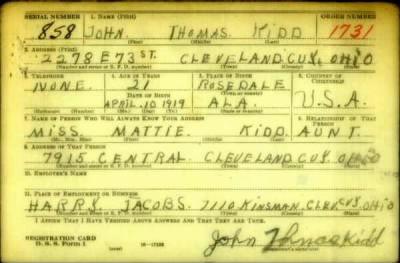 SERIAL NUMBER 1. NAME (Print) ORDER NUMBER
858 JOHN THOMAS KIDD 1731
(First) (Middle) (Last)
2. ADDRESS (Print)
2278 E 73 ST. CLEVELAND CUY. OHIO
(Number and street or R. F. D. number) (Town) (County) (State)
3. TELEPHONE 4. AGE IN YEARS 5. PLACE OF BIRTH 6. COUNTRY OF CITIZENSHIP
NONE. 21 ROSEDALE
DATE OF BIRTH (Town or county)
APRIL 10 1919 ALA. U.S.A.
7. NAME OF PERSON WHO WILL ALWAYS KNOW YOUR ADDRESS 8. RELATIONSHIP OF THAT PERSON
MISS. MATTIE. KIDD. AUNT.
9. ADDRESS OF THAT PERSON
7915 CENTRAL CLEVELAND CUY. OHIO
(Number and street or R. F. D. number) (Town) (County) (State)
10. EMPLOYER'S NAME
11. PLACE OF EMPLOYMENT OR BUSINESS
HARRY. JACOBS. 7710 KINSMAN. CLEV. CUY. OHIO
(Number and street or R. F. D. number) (Town) (County) (State)
I AFFIRM THAT I HAVE VERIFIED ABOVE ANSWERS AND THAT THEY ARE TRUE.
REGISTRATION CARD
D. S. S. Form 1 John Thomas Kidd